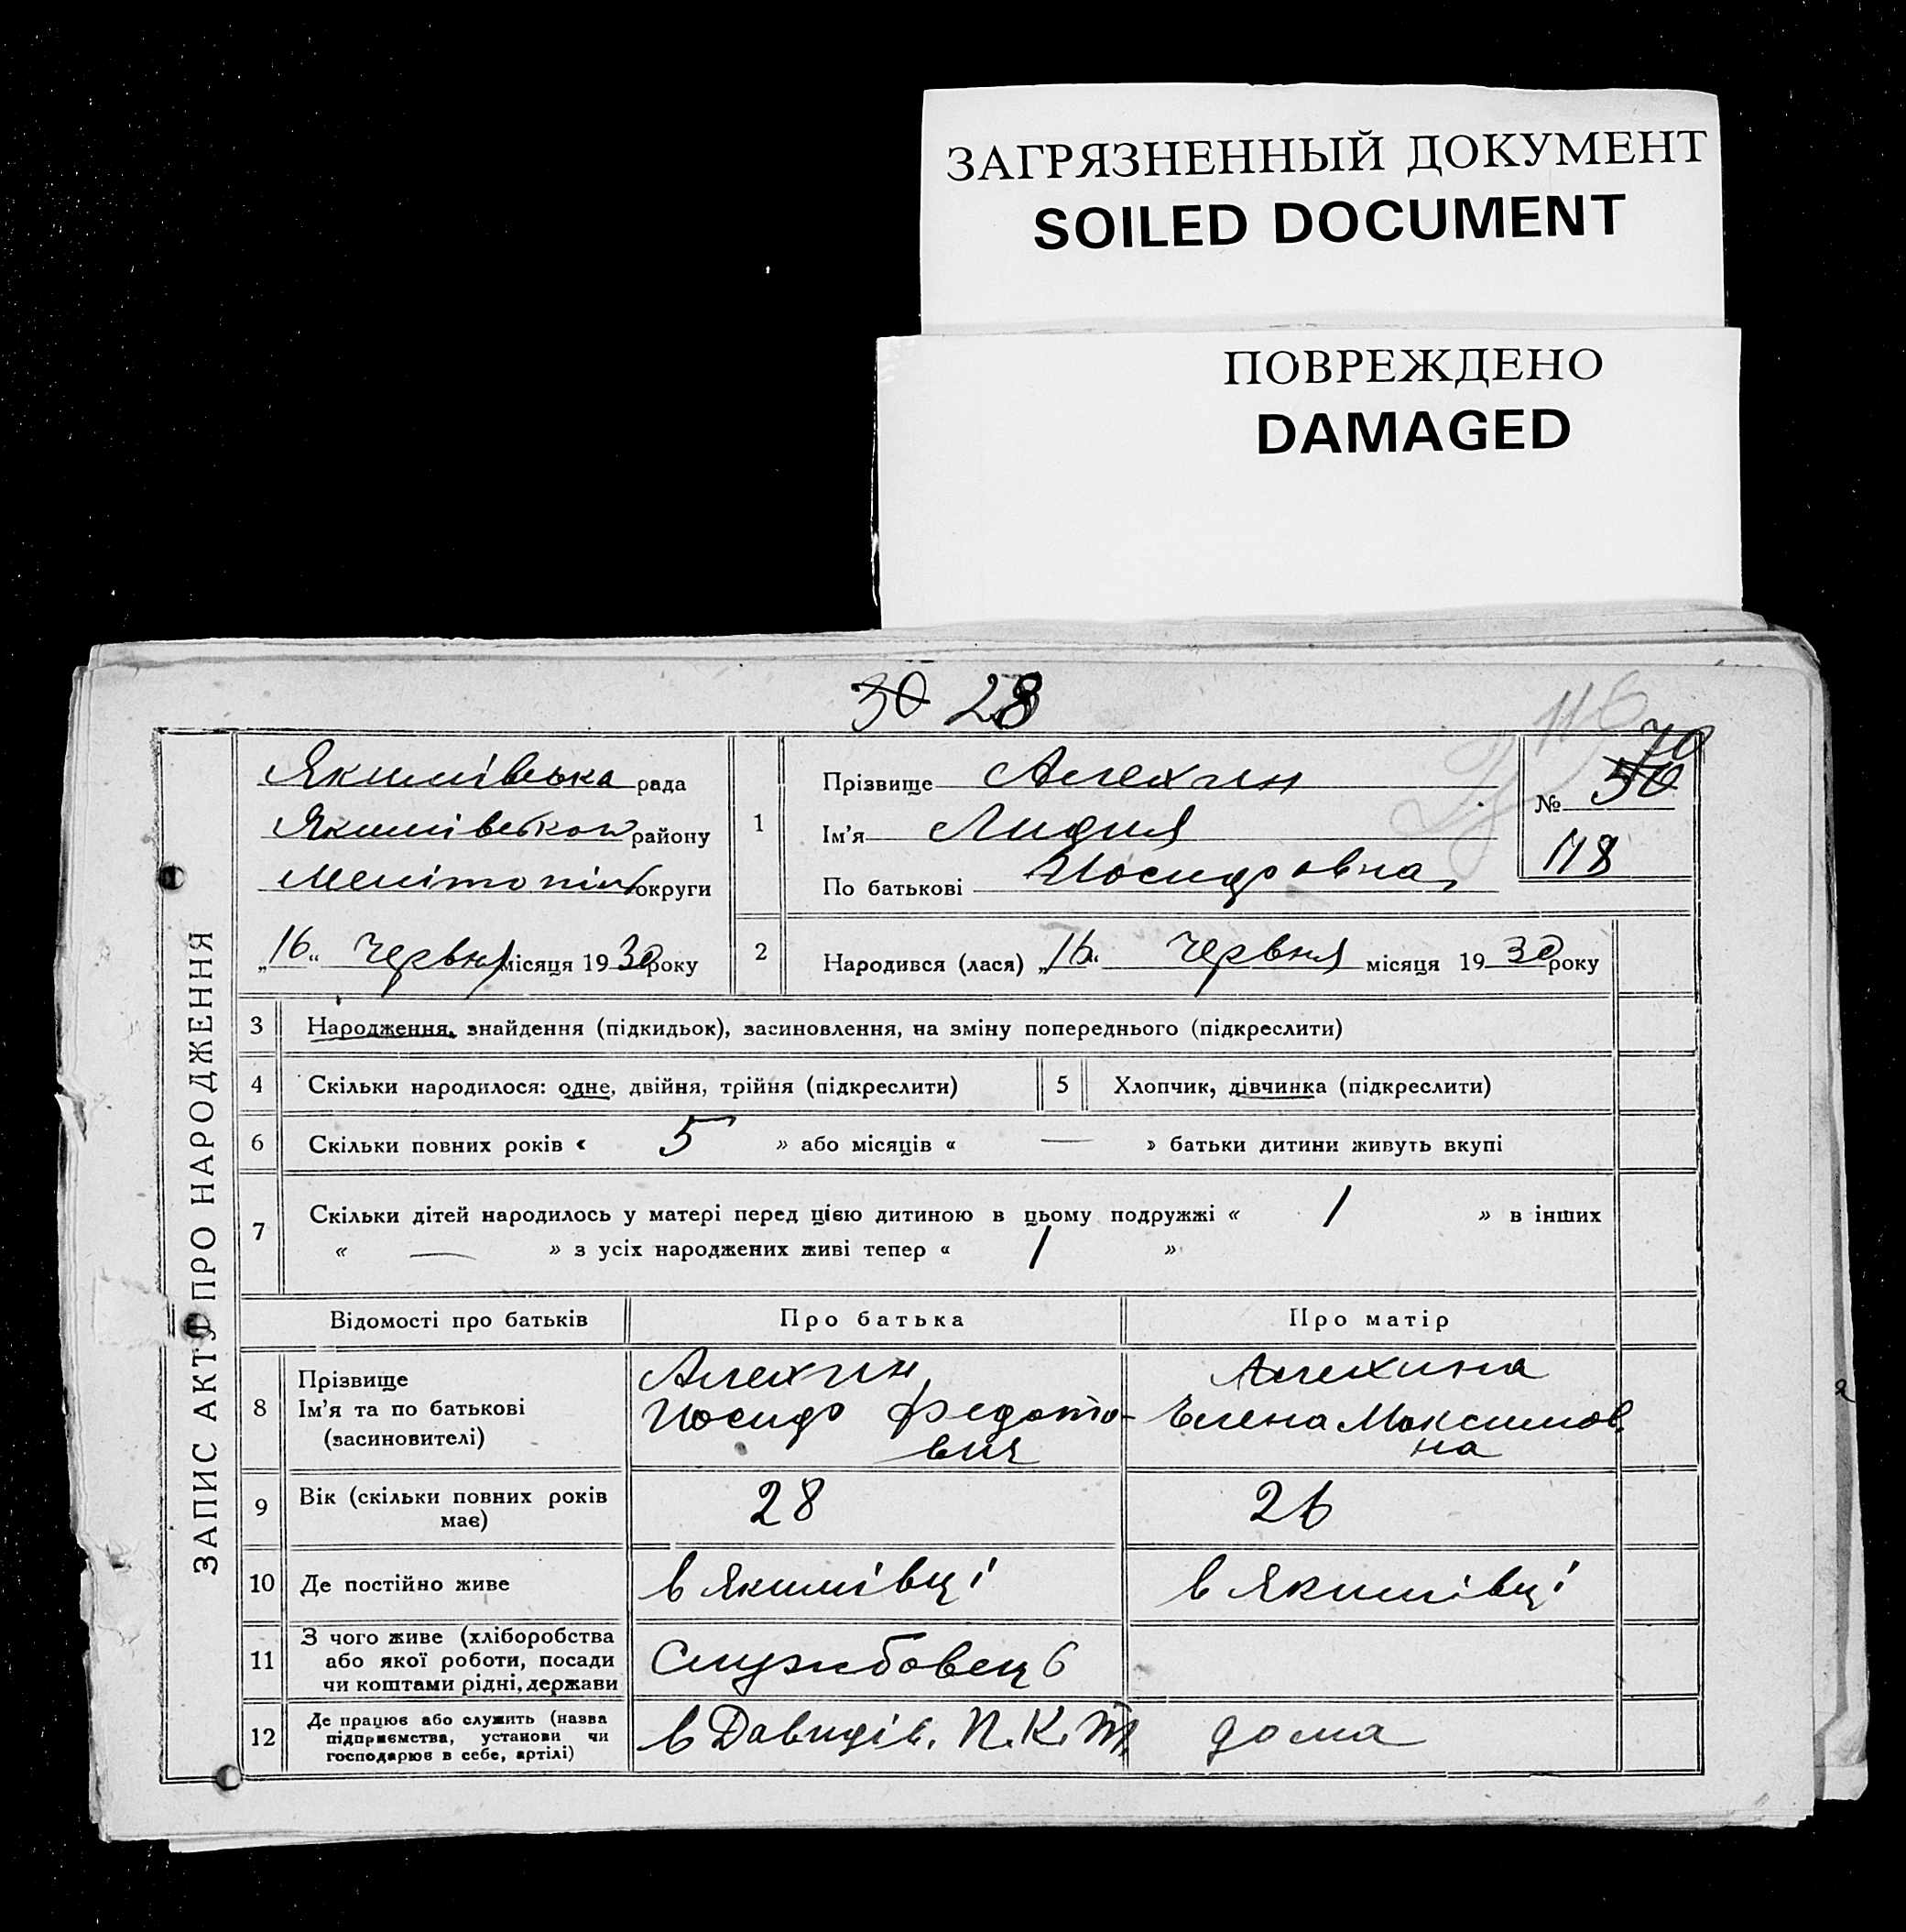 ЗАГРЯЗНЕННЫЙ ДОКУМЕНТ
SOILED DOCUMENT
ПОВРЕЖДЕНО
DAMAGED
30 28
116
70
ЗАПИС АКТУ ПРО НАРОДЖЕННЯ
Якимівська рада
Якимівського району
Мелітопіл округи
„16“ Червня місяця 1930 року
1
Прізвище Алехин
Ім'я Лидия
По батькові Иосифовна
№ 50
118
2
Народився (лася) „16“ Червня місяця 1930 року
3 Народження, знайдення (підкидьок), засиновлення, на зміну попереднього (підкреслити)
4 Скільки народилося: одне, двійня, трійня (підкреслити)
5 Хлопчик, дівчинка (підкреслити)
6 Скільки повних років « 5 » або місяців « — » батьки дитини живуть вкупі
7 Скільки дітей народилось у матері перед цією дитиною в цьому подружжі « 1 » в інших
« — » з усіх народжених живі тепер « 1 »
Відомості про батьків Про батька Про матір
8 Прізвище
Ім'я та по батькові
(засиновителі)
Алехин
Иосиф Федото-
вич
Алехина
Елена Максимов
на
9 Вік (скільки повних років
має)
28 26
10 Де постійно живе в Якимівці в Якимівці
11 З чого живе (хліборобства
або якої роботи, посади
чи коштами рідні, держави
Службовець 6
12 Де працює або служить (назва
підприємства, установи чи
господарює в себе, артілі)
в Давидів. П.К.Т. дома